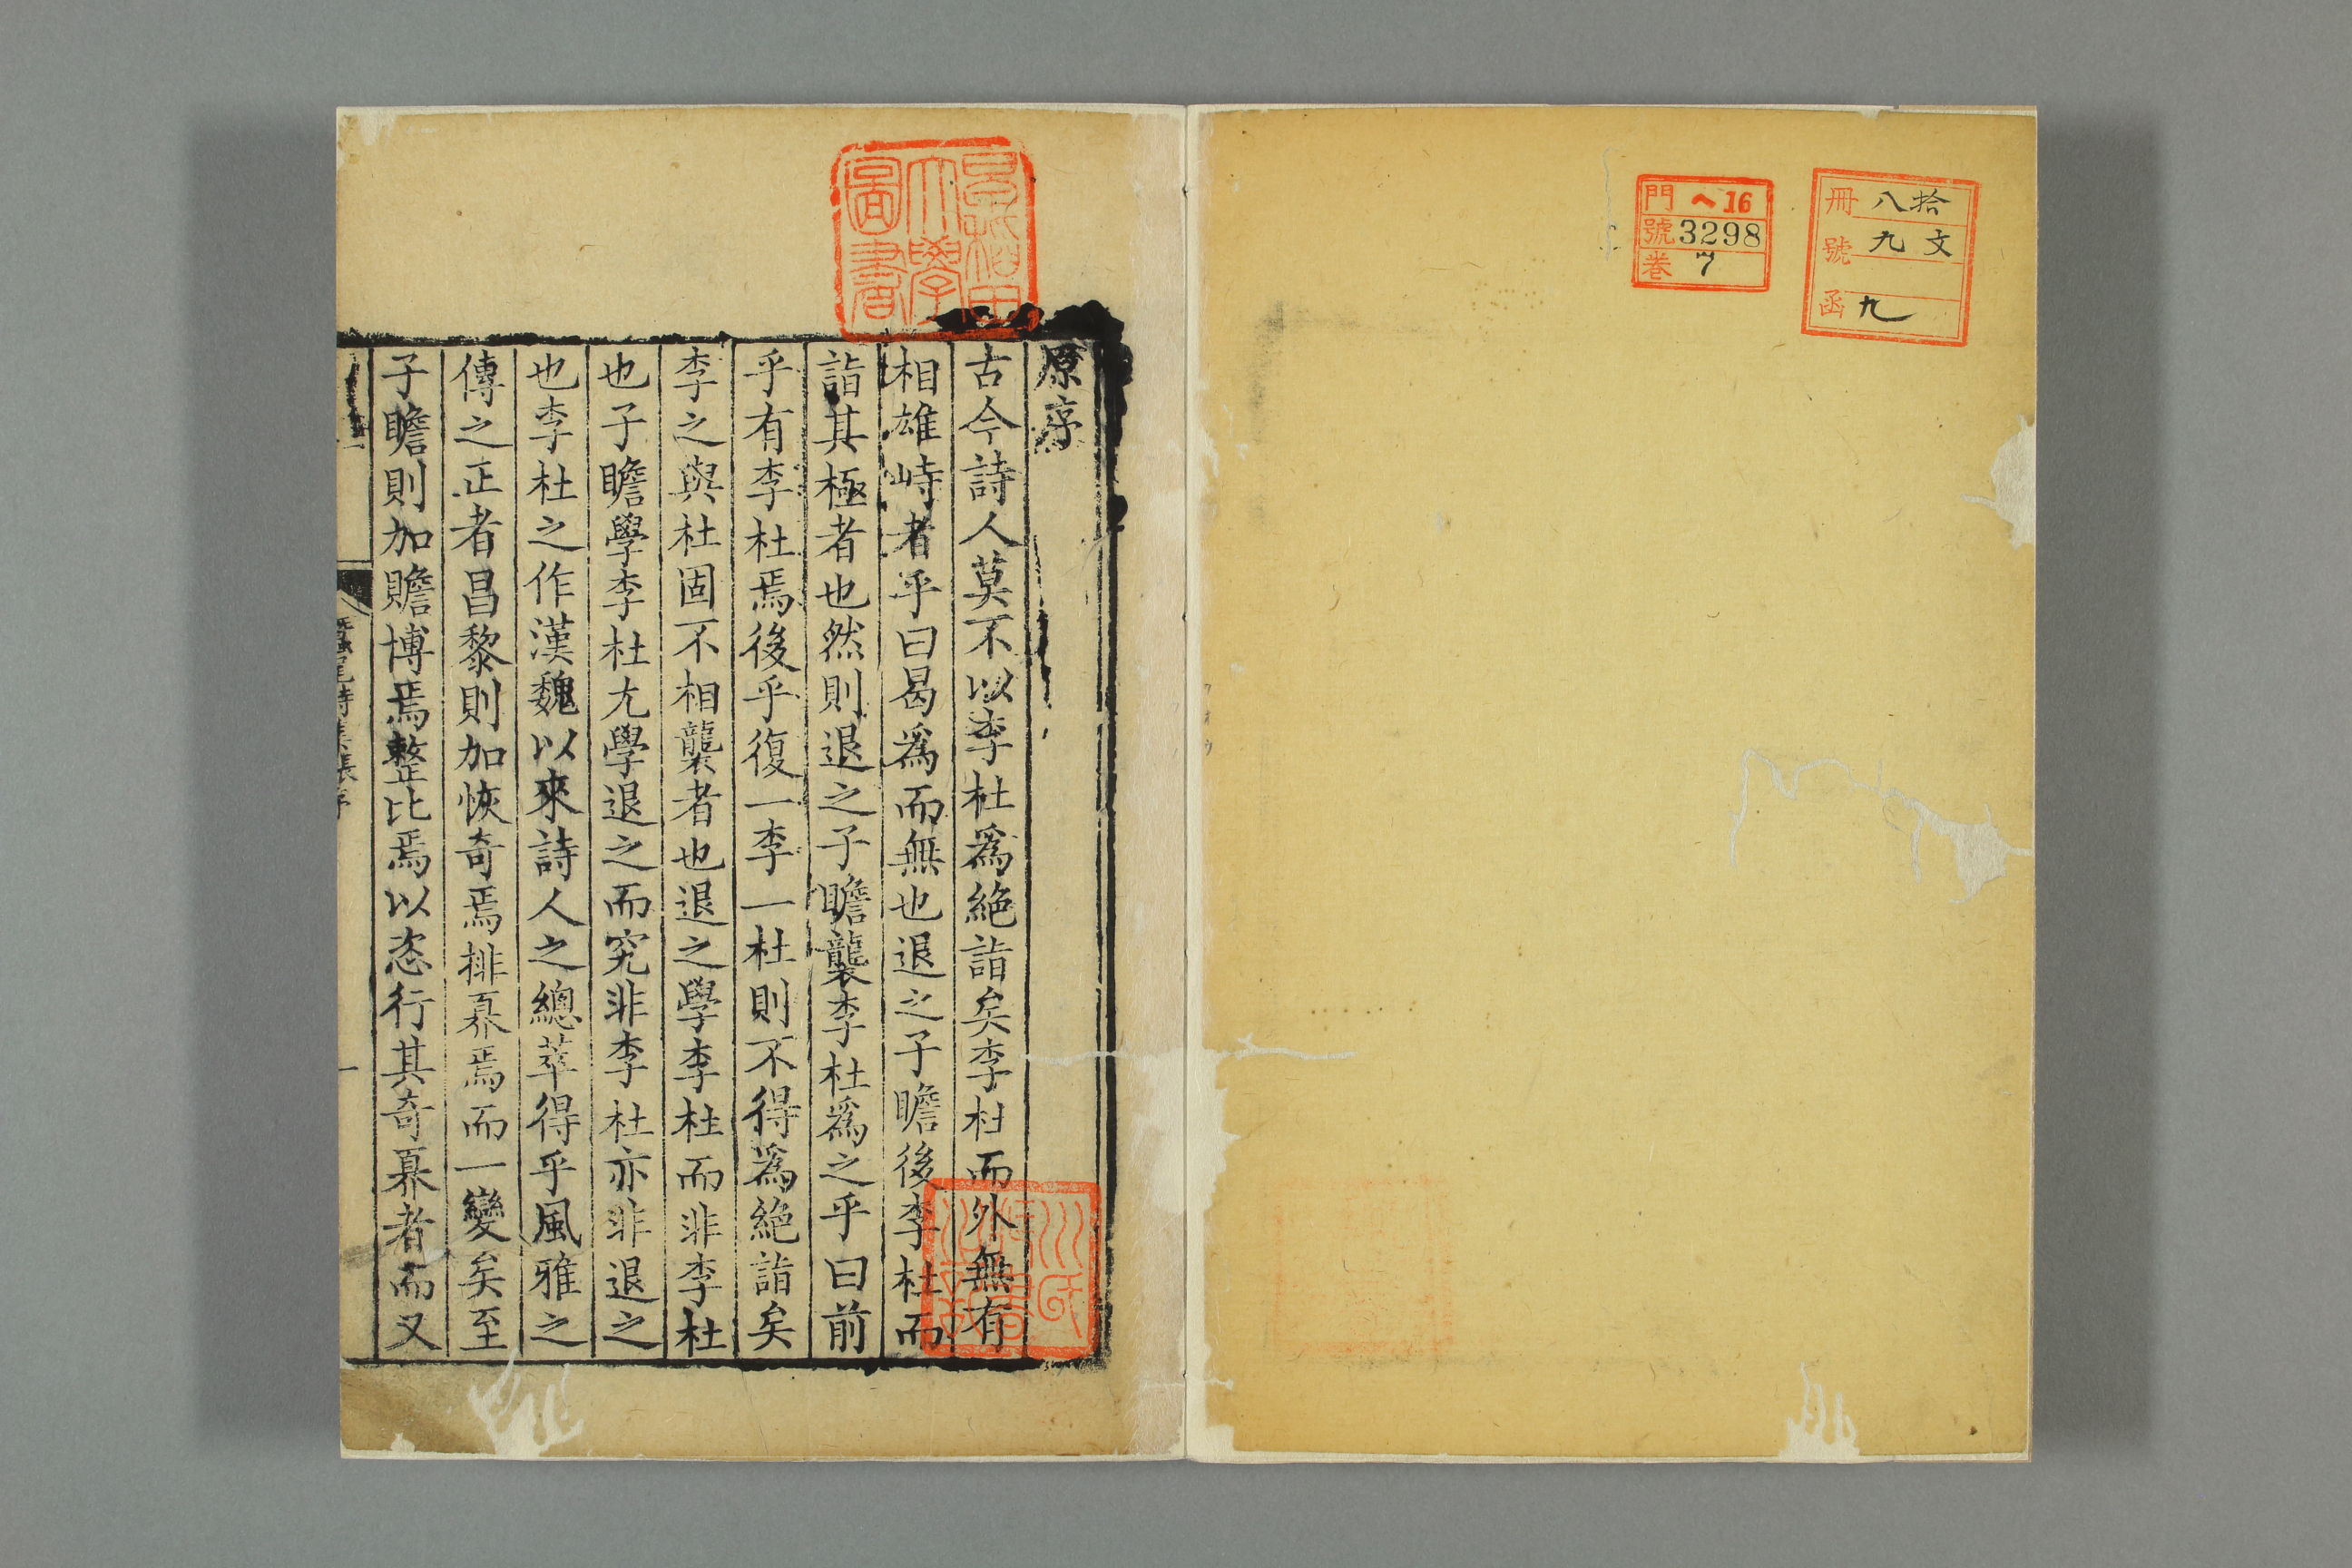 冊 八拾
號 九文
函 九
門 ヘ16
號 3298
卷 7
早稲田
大學
圖書
原序
古今詩人莫不以李杜爲絶詣矣李杜而外無有
相雄峙者乎曰曷爲而無也退之子瞻後李杜而
詣其極者也然則退之子瞻襲李杜爲之乎曰前
乎有李杜焉後乎復一李一杜則不得爲絶詣矣
李之與杜固不相襲者也退之學李杜而非李杜
也子瞻學李杜尤學退之而究非李杜亦非退之
也李杜之作漢魏以來詩人之總萃得乎風雅之
傳之正者昌黎則加恢奇焉排奡焉而一變矣至
子瞻則加贍博焉整比焉以恣行其奇奡者而又